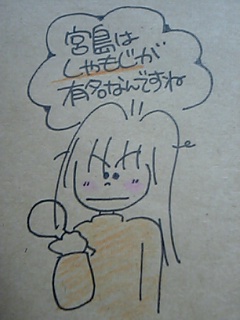 宮島は
しゃもじが
有名なんですね